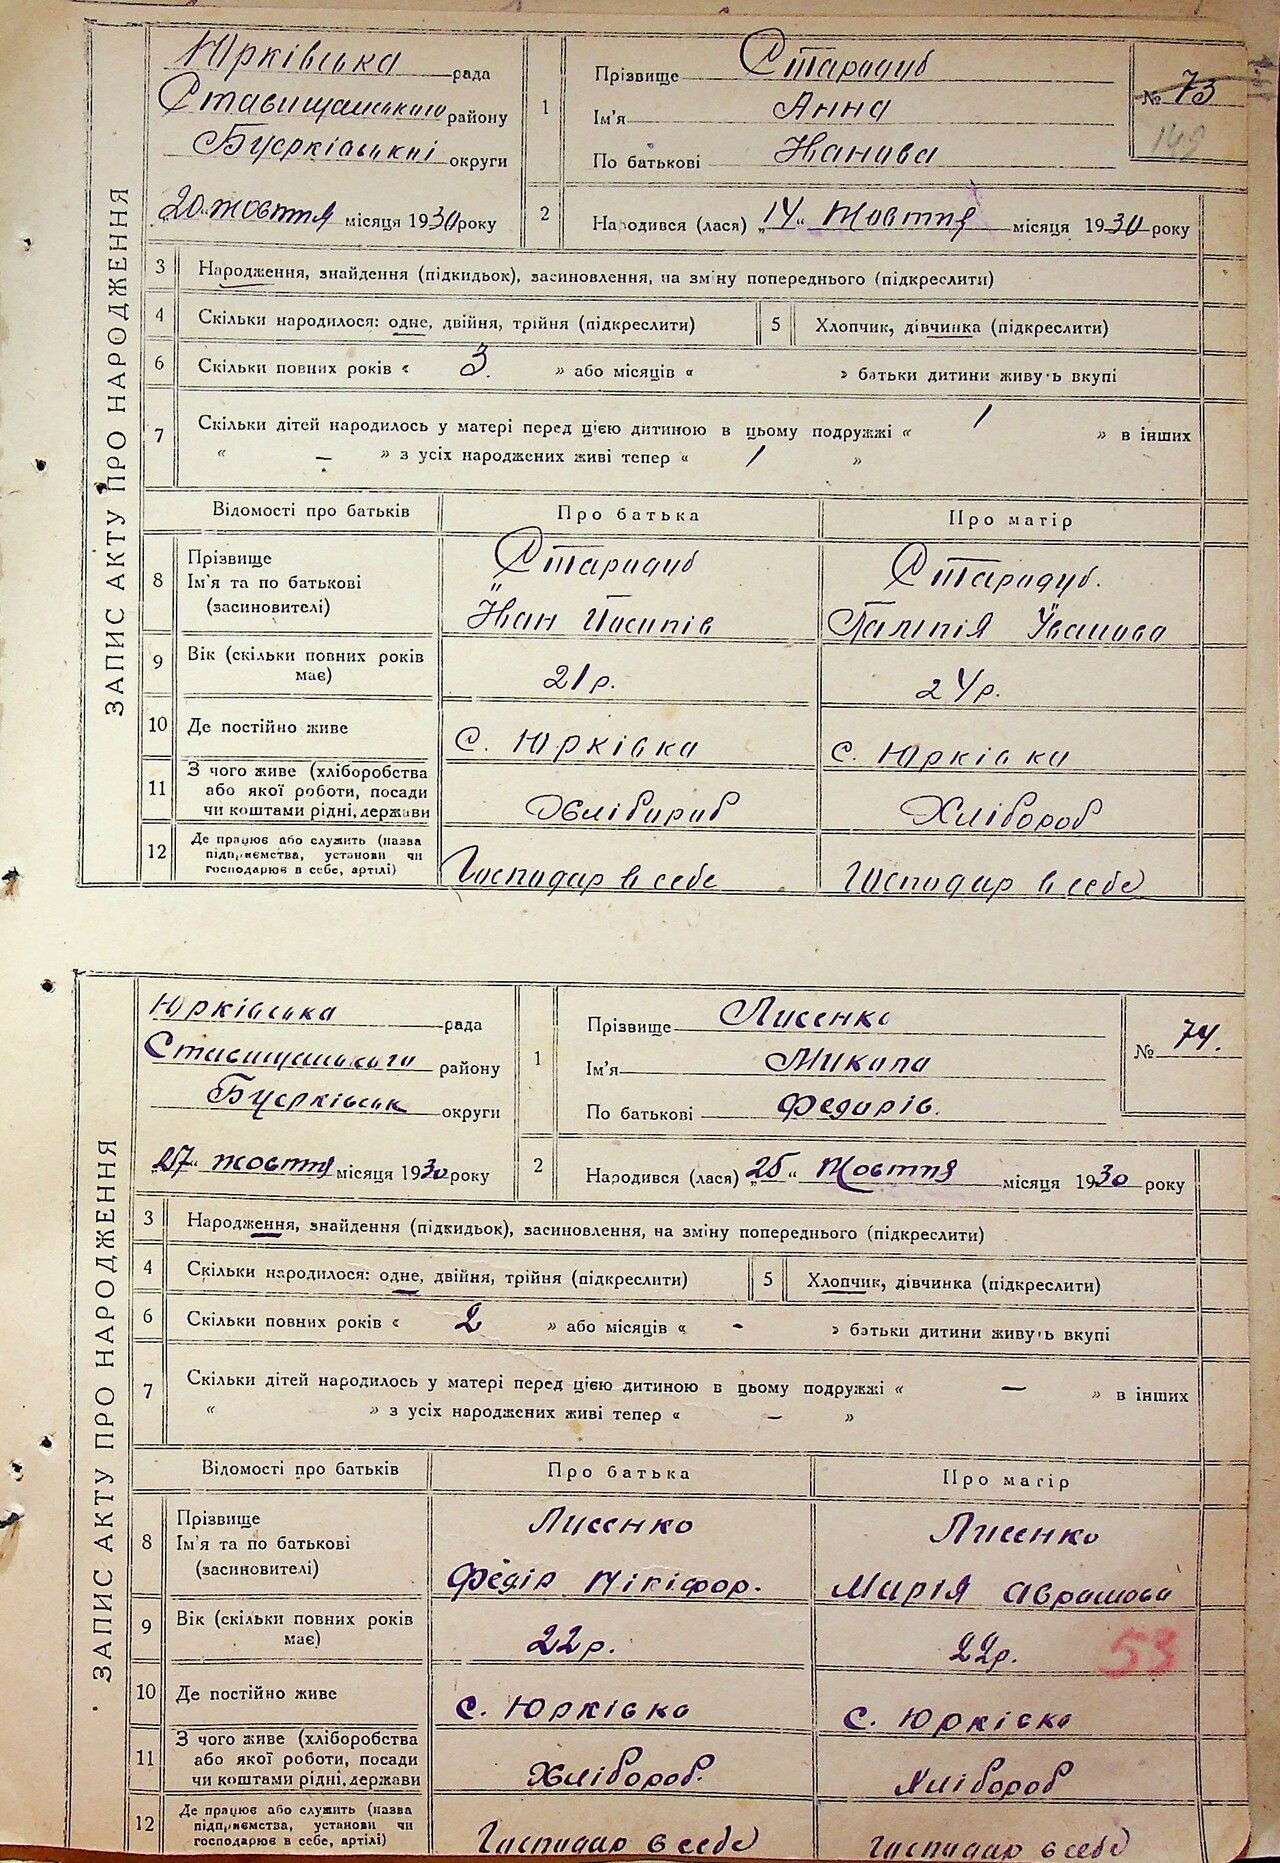 ЗАПИС АКТУ ПРО НАРОДЖЕННЯ
Юрківська рада
Ставищанського району
округи
„20“ жовтня місяця 1930 року
1
Прізвище Стародуб
Ім'я Анна
По батькові Іванова
№ 73
149
2
Народився (лася) „14“ Жовтня місяця 1930 року
3 Народження, знайдення (підкидьок), засиновлення, на зміну попереднього (підкреслити)
4 Скільки народилося: одне, двійня, трійня (підкреслити) 5 Хлопчик, дівчинка (підкреслити)
6 Скільки повних років « 3. » або місяців « » батьки дитини живуть вкупі
7 Скільки дітей народилось у матері перед цією дитиною в цьому подружжі « 1 » в інших
« — » з усіх народжених живі тепер « 1 »
Відомості про батьків Про батька Про матір
8 Прізвище Стародуб Стародуб.
Ім'я та по батькові
(засиновителі) Іван Йосипів Іванова
9 Вік (скільки повних років має) 21 р. 24 р.
10 Де постійно живе с. Юрківка с. Юрківка
11 З чого живе (хліборобства
або якої роботи, посади
чи коштами рідні, держави Хлібороб Хлібороб
12 Де працює або служить (назва
підприємства, установи чи
господарює в себе, артілі) Господар в себе Господар в себе
ЗАПИС АКТУ ПРО НАРОДЖЕННЯ
Юрківська рада
Ставищанського району
округи
„27“ жовтня місяця 1930 року
1
Прізвище Лисенко
Ім'я Микола
По батькові Федорів.
№ 74.
2
Народився (лася) „25“ Жовтня місяця 1930 року
3 Народження, знайдення (підкидьок), засиновлення, на зміну попереднього (підкреслити)
4 Скільки народилося: одне, двійня, трійня (підкреслити) 5 Хлопчик, дівчинка (підкреслити)
6 Скільки повних років « 2 » або місяців « - » батьки дитини живуть вкупі
7 Скільки дітей народилось у матері перед цією дитиною в цьому подружжі « — » в інших
« » з усіх народжених живі тепер « — »
Відомості про батьків Про батька Про матір
8 Прізвище Лисенко Лисенко
Ім'я та по батькові
(засиновителі) Федір Нікіфор. Марія Аврамова
9 Вік (скільки повних років має) 22 р. 22 р.
53
10 Де постійно живе с. Юрківка с. Юрківка
11 З чого живе (хліборобства
або якої роботи, посади
чи коштами рідні, держави Хлібороб. Хлібороб
12 Де працює або служить (назва
підприємства, установи чи
господарює в себе, артілі) Господар в себе Господар в себе